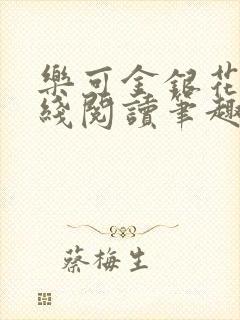 樂可金銀花
綫閱讀筆趣
蔡梅生